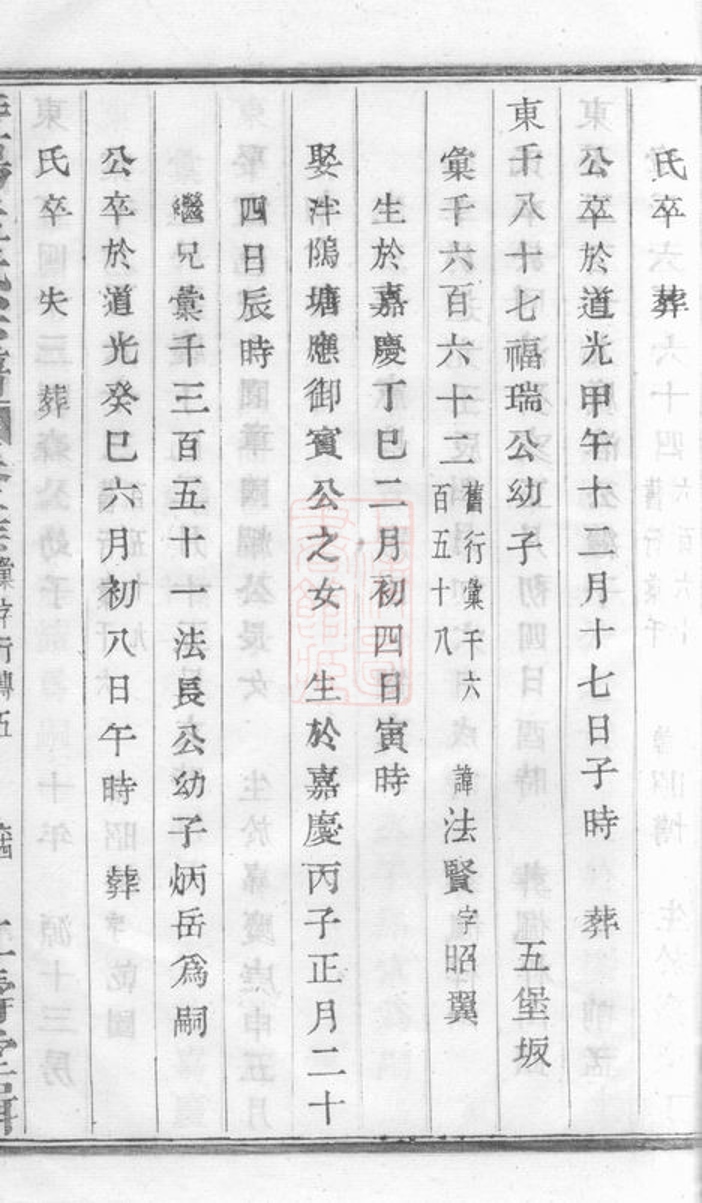 氏卒 葬
公卒於道光甲午十二月十七日子時 葬
東千八十七福瑞公幼子 五堡坂
彙千六百六十二舊行彙千六百五十八 諱法賢字昭翼
生於嘉慶丁巳二月初四日寅時
娶泮隝塘應御賓公之女 生於嘉慶丙子正月二十
四日辰時
繼兄彙千三百五十一法長公幼子炳岳爲嗣
公卒於道光癸巳六月初八日午時 葬
氏卒失 葬